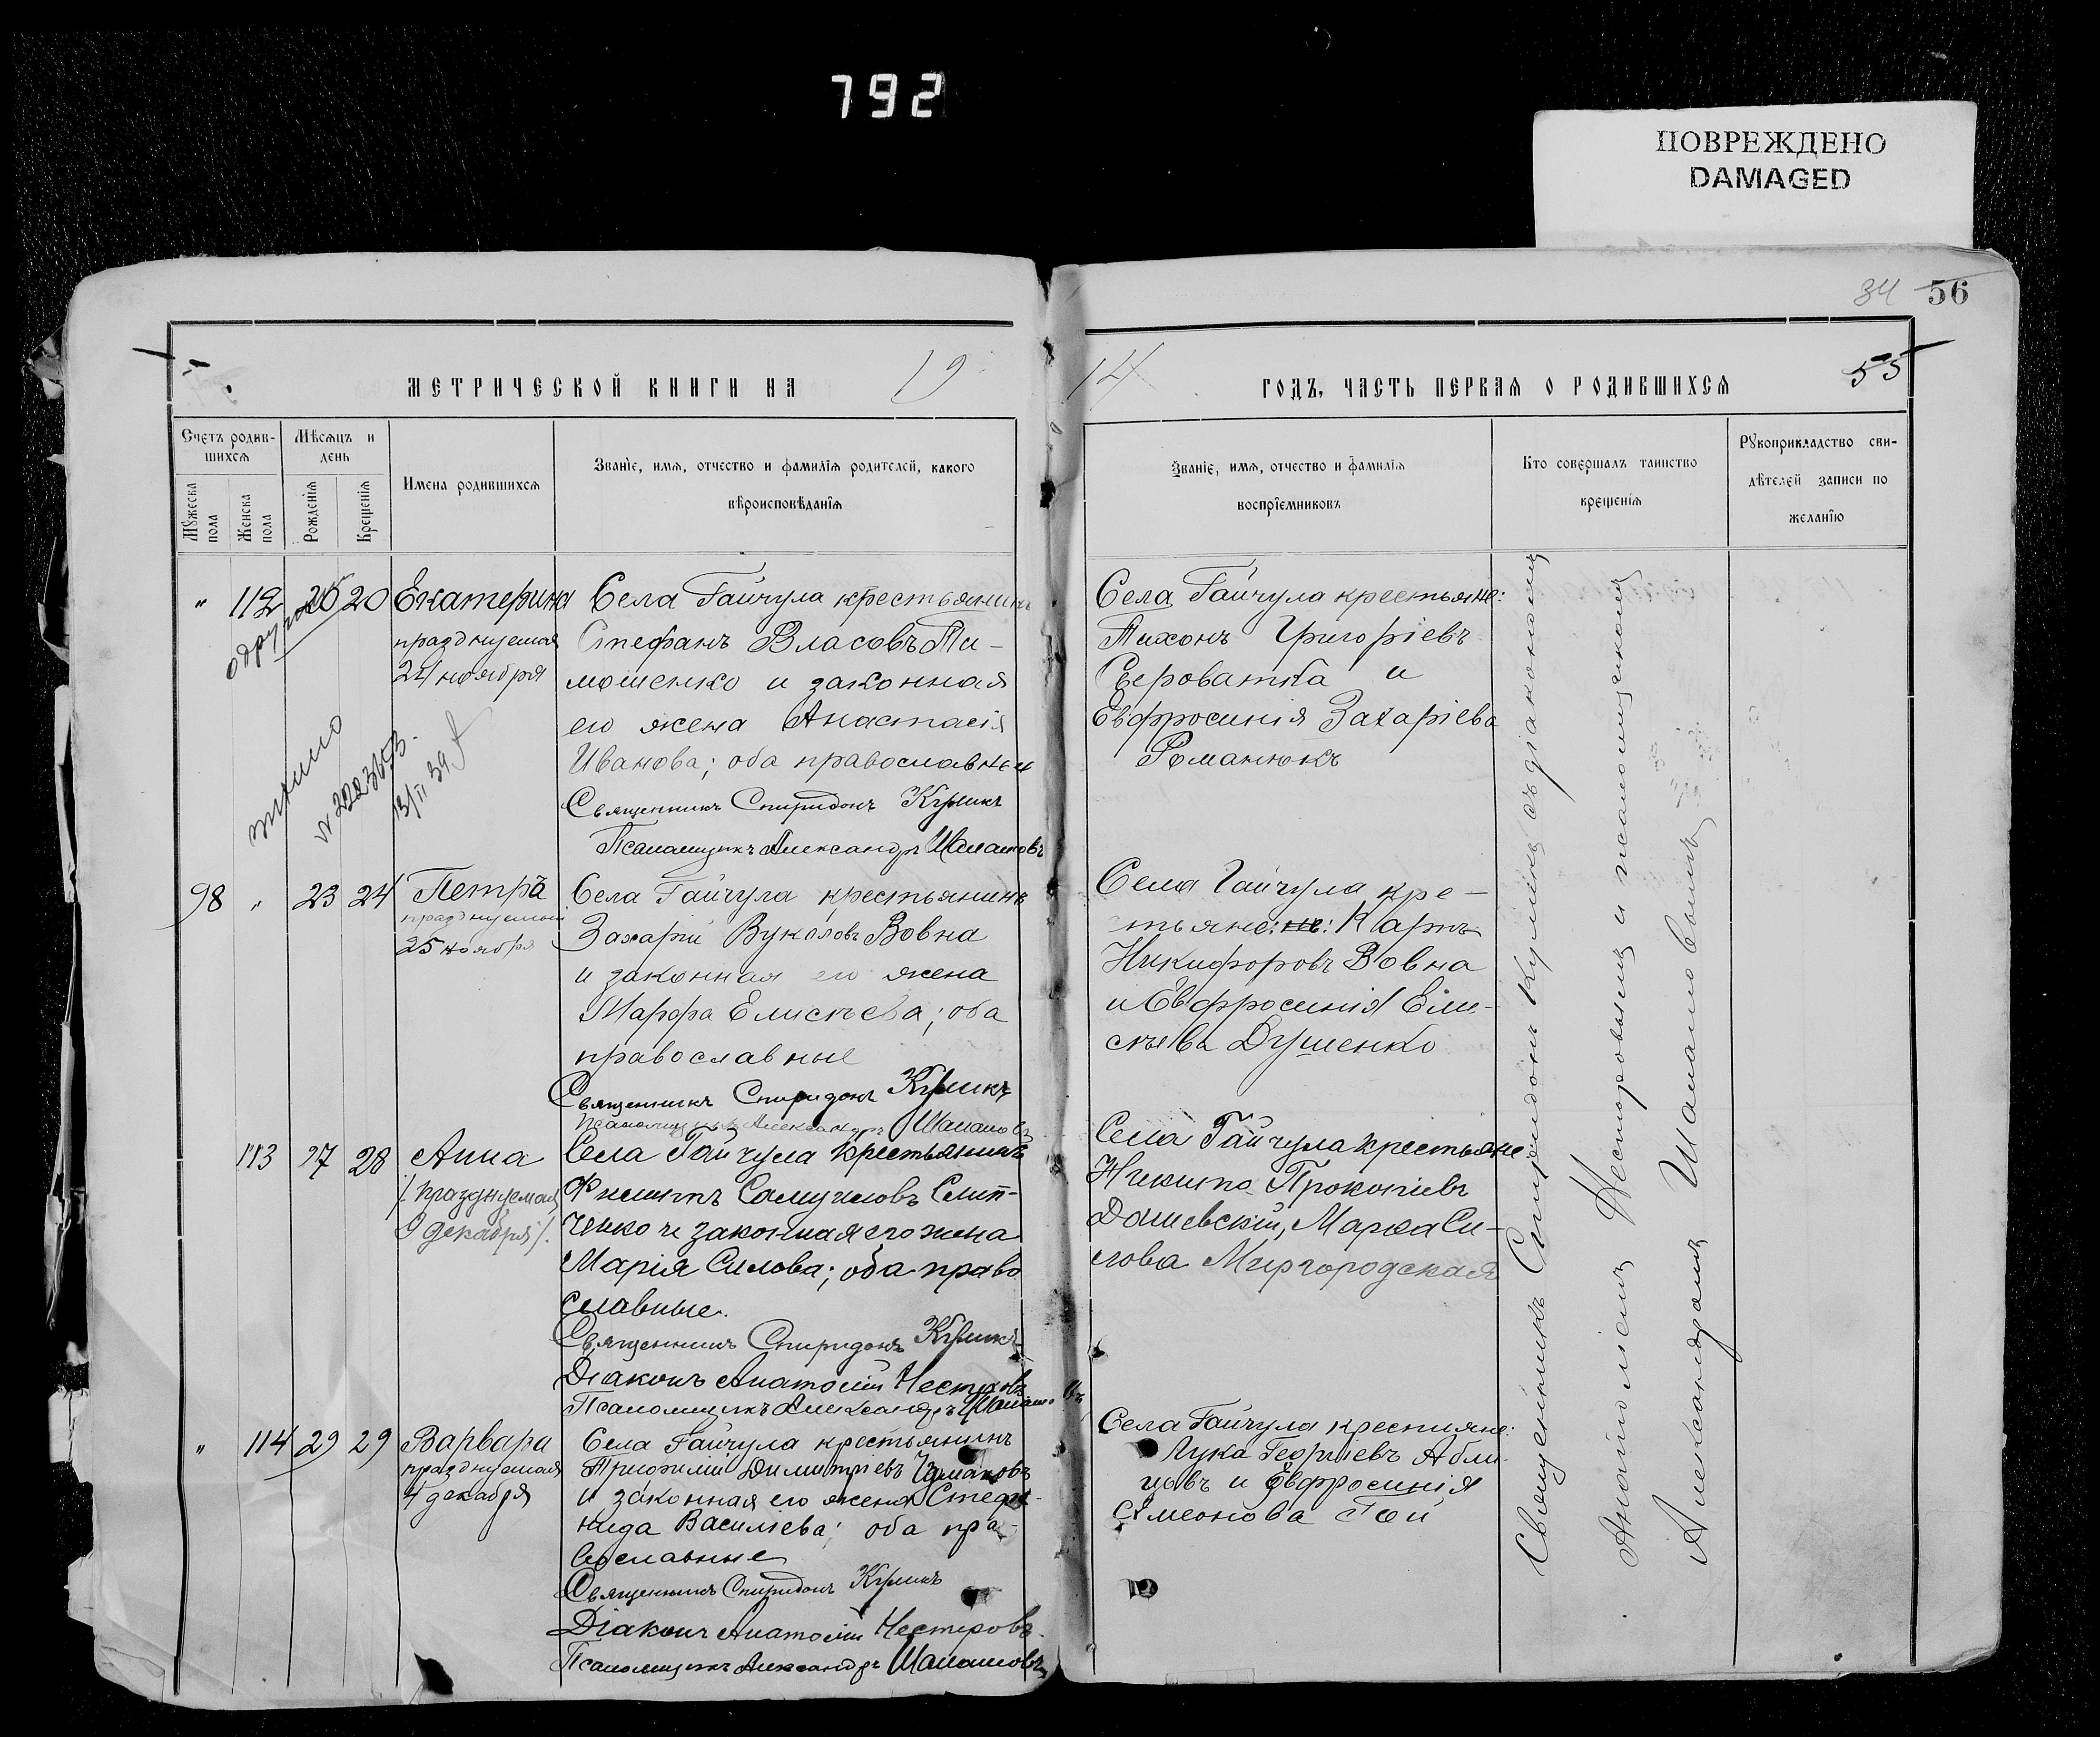 792
ПОВРЕЖДЕНО
DAMAGED
34 56
МЕТРИЧЕСКОЙ КНИГИ НА 19
14 ГОДЪ, ЧАСТЬ ПЕРВАЯ О РОДИВШИХСЯ 55
Счетъ родив-
шихся
Мѣсяцъ и
день
Мужеска
пола
Женска
пола
Рожденія
Крещенія
Имена родившихся
Званіе, имя, отчество и фамилія родителей, какого
вѣроисповѣданія
Званіе, имя, отчество и фамилія
воспріемниковъ
Кто совершалъ таинство
крещенія
Рукоприкладство сви-
дѣтелей записи по
желанію
" 112 20 Екатерина
празднуемая
24 ноября
13/II 39
Села Гайчула крестьянинъ
Стефанъ Власовъ Ти-
мошенко и законная
его жена Анастасія
Иванова; оба православные
Священникъ Спиридонъ Куликъ
Псаломщикъ Александръ
Села Гайчула крестьяне:
Тихонъ Григоріевъ
Сероватка и
Евфросинія Захаріева
Романюкъ
98 " 23 24 Петръ
празднуемый
25 ноября
Села Гайчула крестьянинъ
Захарій Вуколовъ Вовна
и законная его жена
Марфа Елисѣева; оба
православные
Священникъ Спиридонъ Куликъ
Псаломщикъ Александръ
Села Гайчула кре-
стьяне: Карпъ
Никифоровъ Вовна
и Евфросинія Ели-
сѣева Душенко
113 27 28 Анна
/празднуемая
9 декабря/.
Села Гайчула крестьянинъ
Филиппъ Самуиловъ Слип-
ченко и законная его жена
Марія Силова; оба право
славные.
Священникъ Спиридонъ Куликъ
Діаконъ Анатолій Нестеровъ
Псаломщикъ Александръ
Села Гайчула крестьяне
Никита Прокопіевъ
Дашевскій, Марѳа Си-
лова Миргородская
" 114 29 29 Варвара
празднуемая
4 декабря
Села Гайчула крестьянинъ
Трифилій Димитріевъ Чумаковъ
и законная его жена Стефа-
нида Василіева; оба пра-
вославные
Священникъ Спиридонъ Куликъ
Діаконъ Анатолій Нестеровъ.
Псаломщикъ Александръ
Села Гайчула крестьяне:
Лука Георгіевъ
и Евфросинія
Симеонова Гой
Священникъ Спиридонъ Куликъ съ діакономъ
Анатоліемъ Нестеровымъ и псаломщикомъ
Александромъ